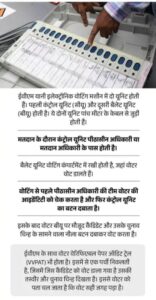 ईवीएम यानी इलेक्ट्रॉनिक वोटिंग मशीन में दो यूनिट होती
हैं। पहली कंट्रोल यूनिट (सीयू) और दूसरी बैलेट यूनिट
(बीयू) होती है। ये दोनों यूनिट पांच मीटर के केबल से जुड़ी
होती हैं।
मतदान के दौरान कंट्रोल यूनिट पीठासीन अधिकारी या
मतदान अधिकारी के पास होती है।
बैलेट यूनिट वोटिंग कंपार्टमेंट में रखी होती है, जहां वोटर
वोट डालते हैं।
वोटिंग से पहले पीठासीन अधिकारी की टीम वोटर की
आइडेंटिटी को चेक करता है और फिर कंट्रोल यूनिट
का बटन दबाता है।
इसके बाद वोटर बीयू पर मौजूद कैंडिडेट और उसके चुनाव
चिन्ह के सामने वाला नीला बटन दबाकर वोट करता है।
ईवीएम के साथ वोटर वेरिफिएबल पेपर ऑडिट ट्रेल
(VVPAT) भी होता है। इसमें से एक पर्ची निकलती
है, जिसमें जिस कैंडिडेट को वोट डाला गया है उसकी
तस्वीर और चुनाव चिह्न दिखता है। इससे वोटर को
पता चल जाता है कि वोट सही जगह पड़ा है।